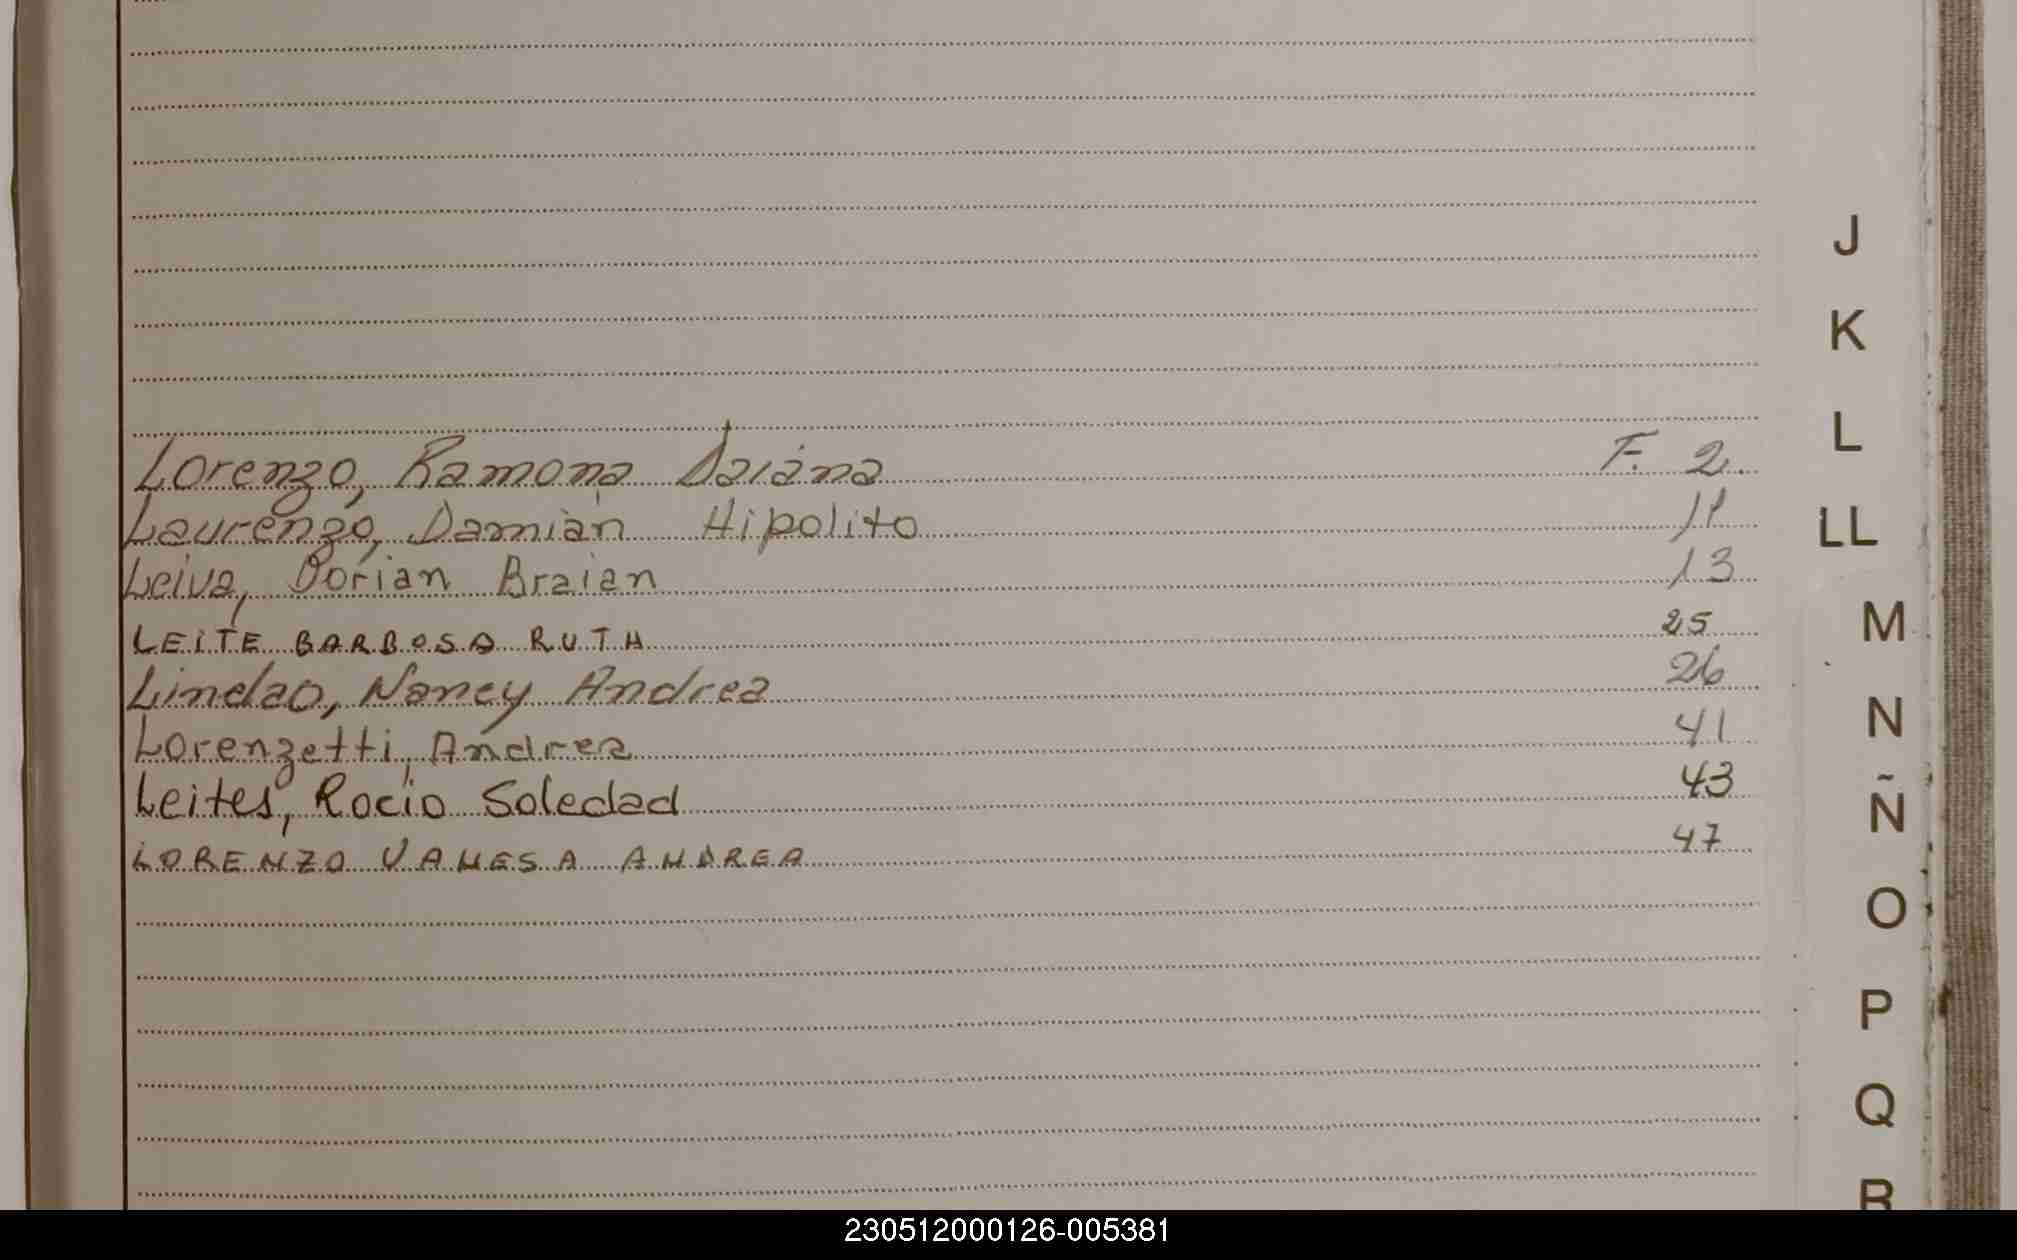 Lorenzo, Ramona Daiana F. 2.
Laurenzo, Damián Hipolito 11
Leiva, Dorian Braian 13
LEITE BARBOSA RUTH 25
Lindao, Nancy Andrea 26
Lorenzetti, Andrea 41
Leites, Rocío Soledad 43
LORENZO VANESA ANDREA 47
J
K
L
LL
M
N
Ñ
O
P
Q
R
230512000126-005381